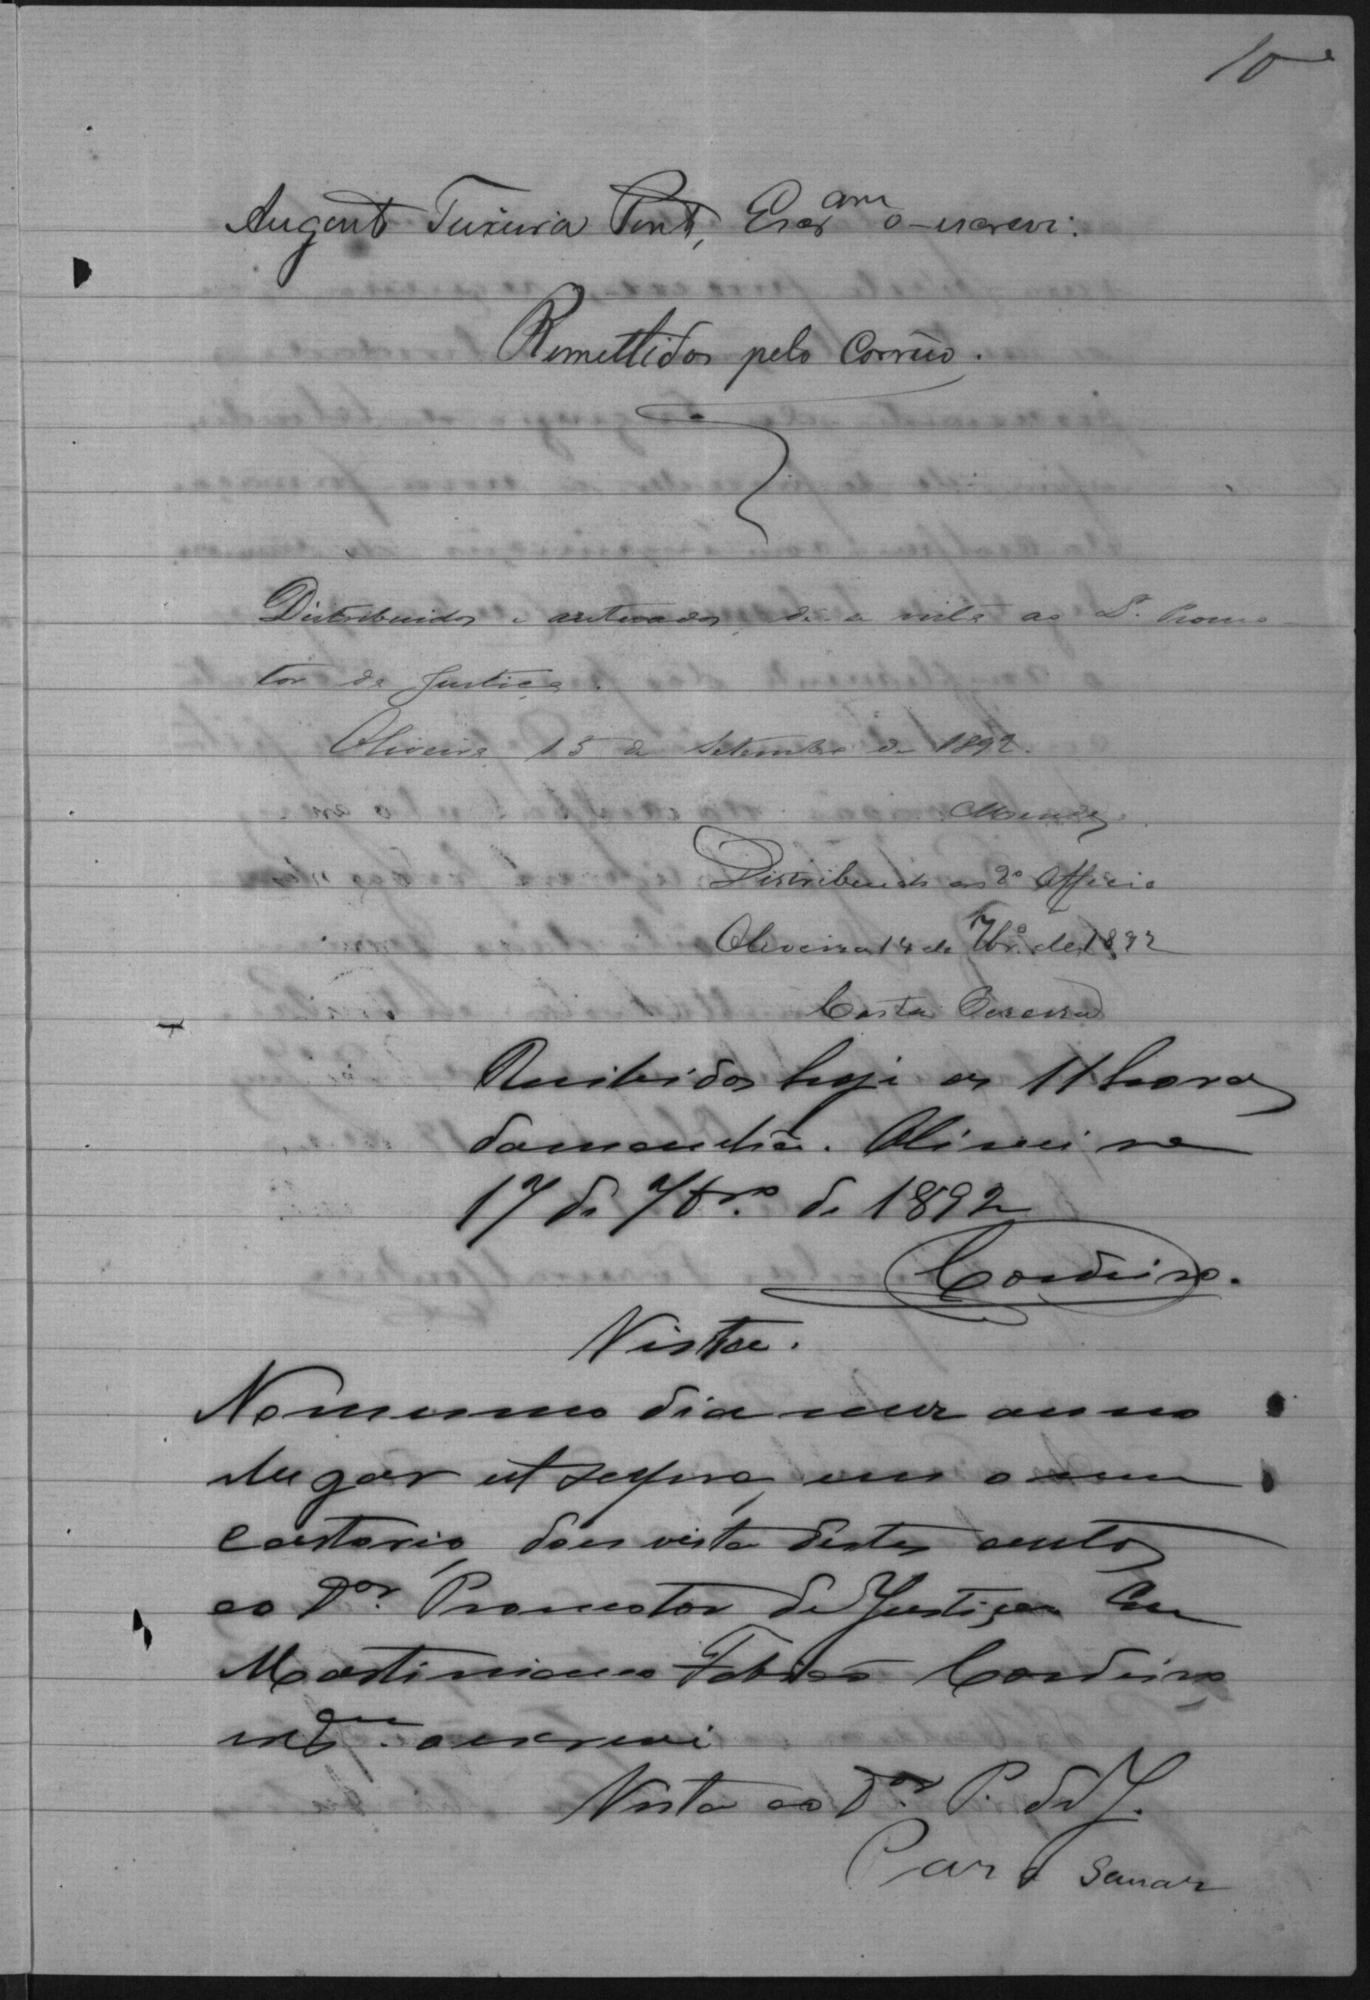 10
August Teixeira Pont, Escr am o-escrevi.
Remettidos pelo Corrêio.
Distribuidos e autuados, dê-se vista ao Dr. Promo-
tor da Justiça.
Oliveira, 15 de Setembro de 1892.
Distribuido ao 2º Officio
Oliveira 14 de 7br.º de 1892
Costa Pereira
Recibidos hoje as 11 horas
damanhã. Oliveira
17 de 7br.º de 1892
Cordeiro.
Vista.
No mesmo dia mez anno
lugar ut supra, em o meu
cartorio, dou vista destes autos
ao Dor. Promotor de Justiça Eu
Martiniano Fabião Cordeiro
o escrevi
Vista ao Dor. P. de J.
Para